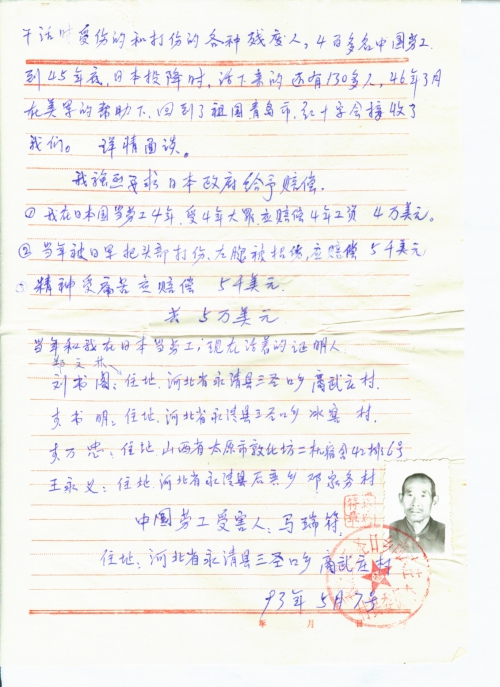 干活时受伤的和打伤的各种残废人，4百多名中国劳工，
到45年底，日本投降时，活下来的还有130多人，46年3月
在美军的帮助下，回到了祖国青岛市，红十字会接收了
我们。 详情面谈。
我强烈要求日本政府给予赔偿。
① 我在日本国当劳工4年，受4年大罪，应赔偿4年工资 4万美元。
② 当年被日军把头部打伤，左腿被打伤，应赔偿 5千美元
精神受痛苦应赔偿 5千美元.
共 5万美元
当年和我在日本当劳工，现在活着的证明人
郑文
刘书阁：住址，河北省永清县三圣口乡 武庄村.
书明：住址，河北省永清县三圣口乡 冰窖 村.
万忠：住址 山西省太原市敦化坊二 宿舍42排6号
王永义：住址 河北省永清县后奕乡 邓家务村
中国劳工受害人：马瑞符
住址：河北省永清县三圣口乡 武庄村
93年5月7号
年 月 日